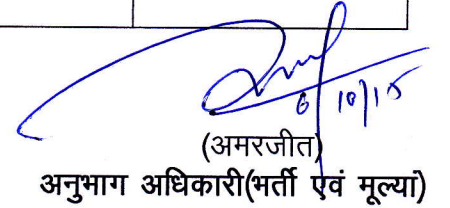 6/10/15
(अमरजीत)
अनुभाग अधिकारी(भर्ती एवं मूल्या)